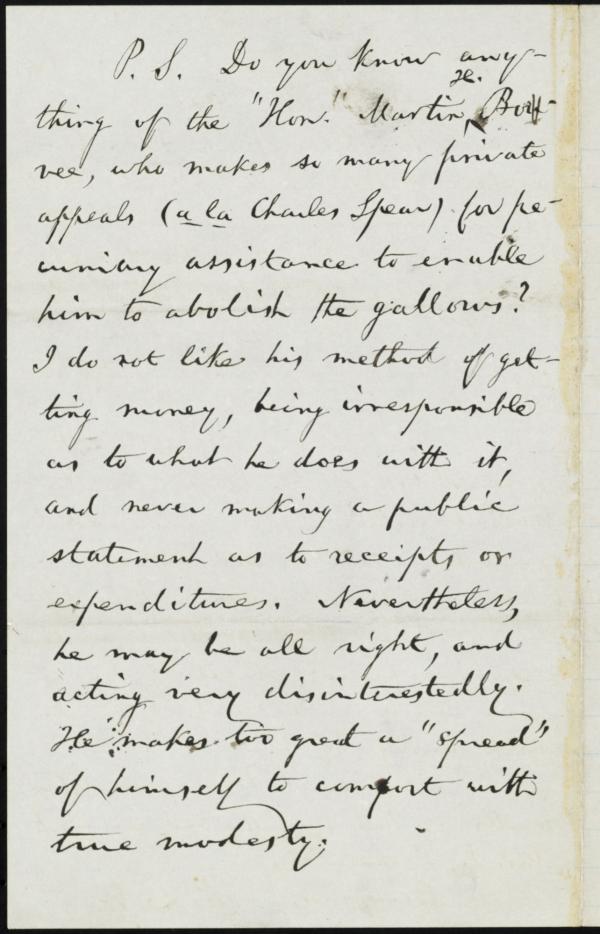 P. S. Do you know any-
thing of the "Hon." Martin H. Bov-
vee, who makes so many private
appeals (a la Charles Spear) for pe-
cuniary assistance to enable
him to abolish the gallows?
I do not like his method of get-
ting money, being irresponsible
as to what he does with it,
and never making a public
statement as to receipts or
expenditures. Nevertheless,
he may be all right, and
acting very disinterestedly.
He makes too great a "spread"
of himself to comport with
true modesty.